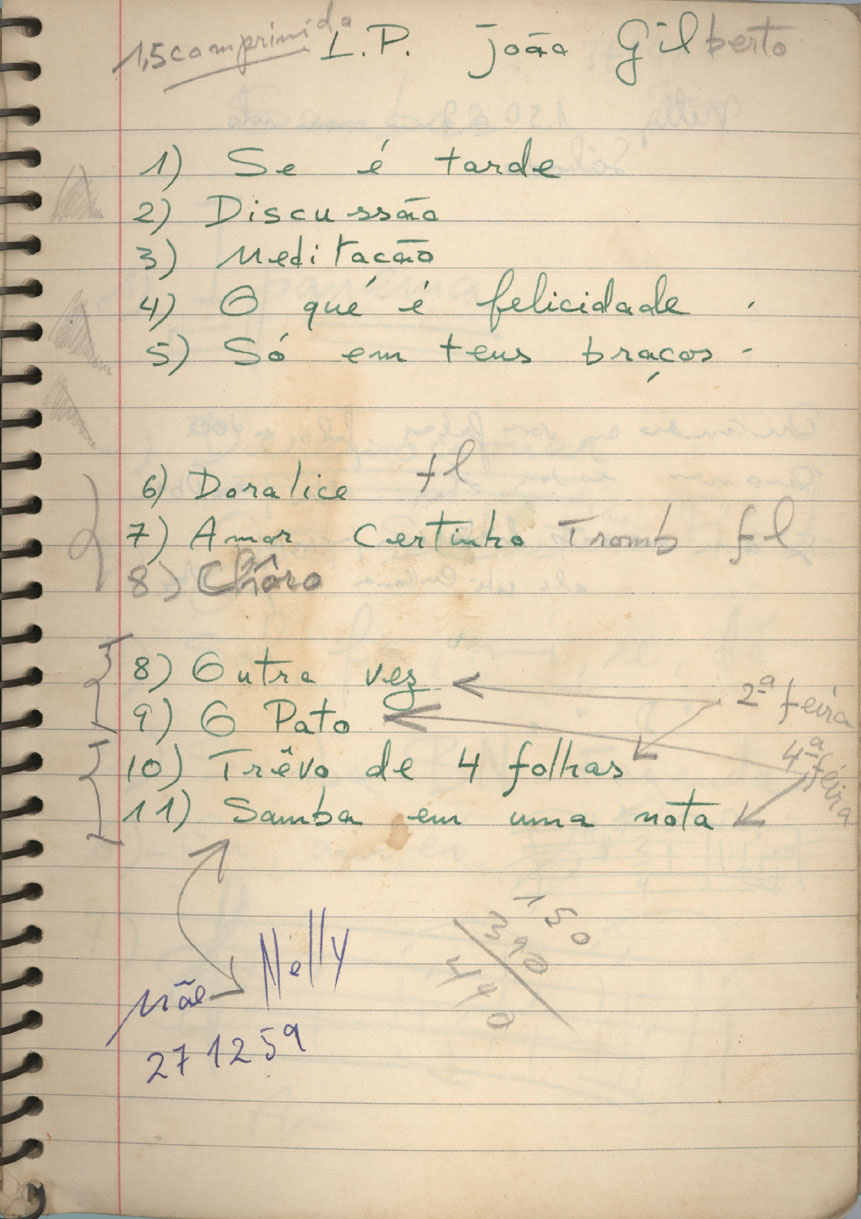 1,5 comprimida L.P. João Gilberto
1) Se é tarde
2) Discussão
3) Meditacão
4) O qué é felicidade
5) Só em teus braços -
6) Doralice fl
7) Amor Certinho Tromb fl
8) Chôro
8) Outra vez
2ª feira
9) O Pato
4ª feira
10) Trêvo de 4 folhas
11) Samba em uma nota
150
390
440
Mãe Nelly
271259